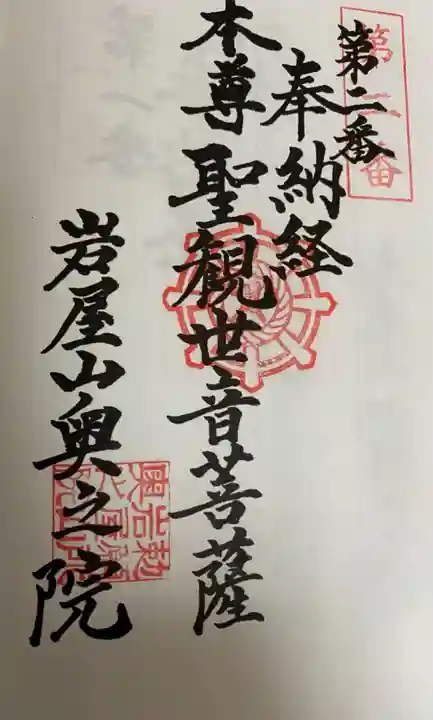 第二番
第二番
奉納経
本尊聖観世音菩薩
岩屋山奥之院